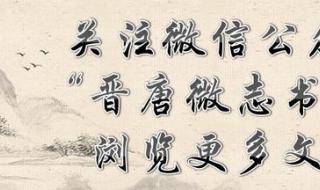 关注微信公众
“晋唐微志书
浏览更多文